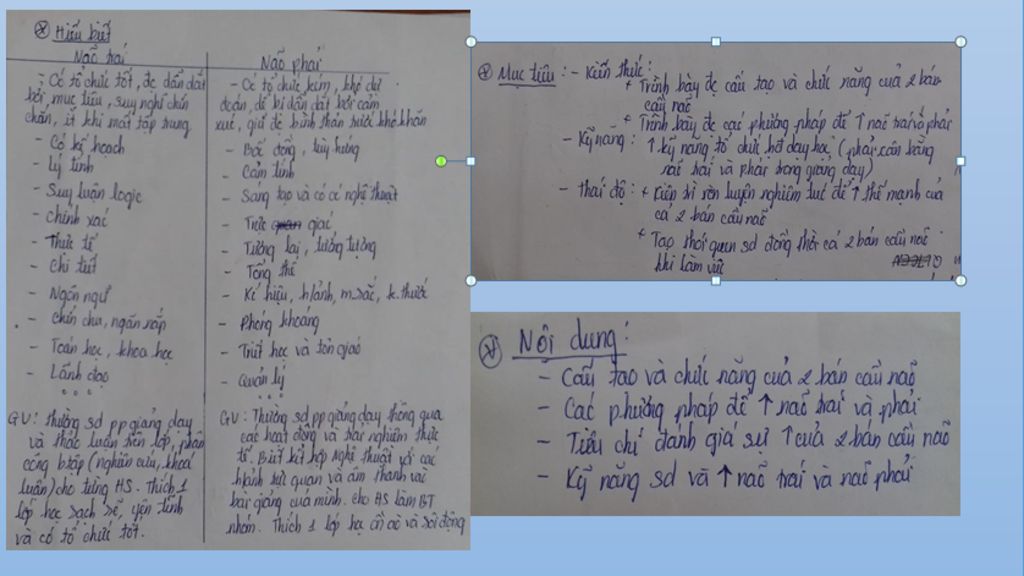 Hiểu biết
Não trái
- Có tổ chức tốt, đc dẫn dắt
bởi mục tiêu, suy nghĩ chín
chắn, ít khi mất tập trung
- Có kế hoạch
- Lý tính
- Suy luận logic
- Chính xác
- Thực tế
- Chi tiết
- Ngôn ngữ
- Chỉn chu, ngăn nắp
- Toán học, khoa học
- Lãnh đạo
...
GV: thường sd pp giảng dạy
và thảo luận trên lớp, phân
công btập (nghiên cứu, khoá
luận) cho từng HS. Thích 1
lớp học sạch sẽ, yên tĩnh
và có tổ chức tốt.
Não phải
- Có tổ chức kém, khó dự
đoán, dễ bị dẫn dắt bởi cảm
xúc, giữ đc bình thản trước khó khăn
- Bốc đồng, tùy hứng
- Cảm tính
- Sáng tạo và có óc nghệ thuật
- Trực giác
- Tương lai, tưởng tượng
- Tổng thể
- Kí hiệu, h/ảnh, m.sắc, k.thước
- Phóng khoáng
- Triết học và tôn giáo
- Quản lý
...
GV: Thường sd pp giảng dạy thông qua
các hoạt động và trải nghiệm thực
tế. Biết kết hợp nghệ thuật với các
h/ảnh trực quan và âm thanh vào
bài giảng của mình. cho HS làm BT
nhóm. Thích 1 lớp học ồn ào và sôi động
Mục tiêu: - Kiến thức:
+ Trình bày đc cấu tạo và chức năng của 2 bán
cầu não
+ Trình bày đc các phương pháp để ↑ não trái & phải
- Kỹ năng: ↑ kỹ năng tổ chức hđ dạy học (phải cân bằng
não trái và phải trong giảng dạy)
- Thái độ: + Kiên trì rèn luyện nghiêm túc để ↑ thế mạnh của
cả 2 bán cầu não
+ Tạo thói quen sd đồng thời cả 2 bán cầu não
khi làm việc
Nội dung:
- Cấu tạo và chức năng của 2 bán cầu não
- Các phương pháp để ↑ não trái và phải
- Tiêu chí đánh giá sự ↑ của 2 bán cầu não
- Kỹ năng sd và ↑ não trái và não phải